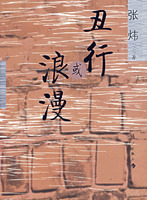 张炜 著
丑行
或
浪漫